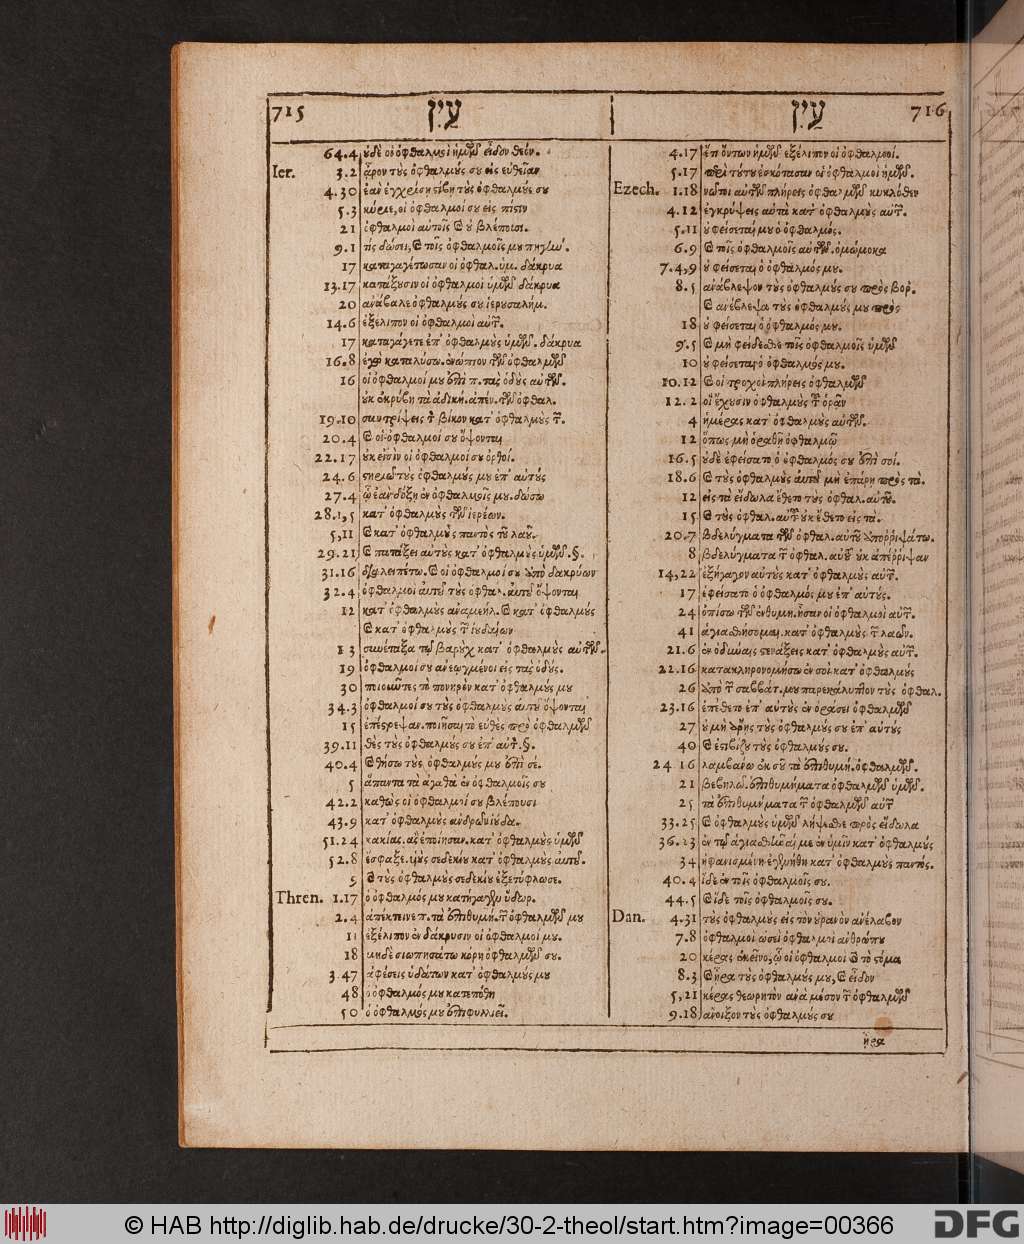 715 עַיִן
64.4 ȣδὲ οἱ ὀφθαλμοὶ ἡμῶν εἶδον θεόν.
Ier. 3.2 ἆρον τȣς ὀφθαλμȣς σȣ εἰς εὐθεῖαν
4.30 ἐὰν ἐγχρίσῃ στίβη τȣς ὀφθαλμȣς σȣ
5.3 κύριε, οἱ ὀφθαλμοί σȣ εἰς πίστιν
21 ὀφθαλμοὶ αὐτοῖς ϗ ȣ βλέπουσι.
9.1 τίς δώσει, ϗ τοῖς ὀφθαλμοῖς μȣ πηγὴν.
17 καταγαγέτωσαν οἱ ὀφθαλ. ὑμ. δάκρυα
13.17 κατάξȣσιν οἱ ὀφθαλμοὶ ὑμῶν δάκρυα
20 ἀνάβαλε ὀφθαλμȣς σȣ ἱερȣσαλήμ.
14.6 ἐξέλιπον οἱ ὀφθαλμοὶ αὐτῶν.
17 καταγάγετε ἐπ' ὀφθαλμȣς ὑμῶν. δάκρυα
16.8 ἐγὼ καταλύσω. ἐνώπιον τῶν ὀφθαλμῶν
16 οἱ ὀφθαλμοί μȣ ἐπὶ π. τὰς ὁδȣς αὐτῶν.
ȣκ ἐκρύβη τὰ ἀδική. ἀπέν. τῶν ὀφθαλ.
19.10 συντρίψεις τ βίκον κατ' ὀφθαλμȣς τ.
20.4 ϗ οἱ ὀφθαλμοί σȣ ὄψονται
22.17 ȣκ εἰσὶν οἱ ὀφθαλμοί σȣ ὀρθοί.
24.6 στηριῶ τȣς ὀφθαλμȣς μȣ ἐπ' αὐτȣς
27.4 ᾧ ἐὰν δόξῃ ἐν ὀφθαλμοῖς μȣ. δώσω
28.1,5 κατ' ὀφθαλμȣς τῶν ἱερέων.
5,11 ϗ κατ' ὀφθαλμȣς παντὸς τȣ λαȣ.
29.21 ϗ πατάξει αὐτȣς κατ' ὀφθαλμȣς ὑμῶν. §.
31.16 διαλειπέτω. ϗ οἱ ὀφθαλμοί σȣ ἀπὸ δακρύων
32.4 ὀφθαλμοὶ αὐτȣ τȣς ὀφθαλ. αὐτȣ ὄψονται
12 κατ' ὀφθαλμȣς ἀναμεήλ. ϗ κατ' ὀφθαλμȣς
ϗ κατ' ὀφθαλμȣς τ ἰȣδαίων
13 συνέταξα τῷ βαρȣχ κατ' ὀφθαλμȣς αὐτῶν.
19 ὀφθαλμοί σȣ ἀνεῳγμένοι εἰς τὰς ὁδȣς.
30 ποιοῦντες τὸ πονηρὸν κατ' ὀφθαλμȣς μȣ
34.3 ὀφθαλμοί σȣ τȣς ὀφθαλμȣς αὐτȣ ὄψονται
15 ἐπέστρεψαν. ποιῆσαι τὸ εὐθὲς πρὸ ὀφθαλμῶν
39.11 θὲς τȣς ὀφθαλμȣς σȣ ἐπ' αὐτ. §.
40.4 ϗ θήσω τȣς ὀφθαλμȣς μȣ ἐπὶ σέ.
5 ἅπαντα τὰ ἀγαθὰ ἐν ὀφθαλμοῖς σȣ
42.2 καθὼς οἱ ὀφθαλμοί σȣ βλέπουσι
43.9 κατ' ὀφθαλμȣς ἀνδρῶν ἰȣδα.
51.24 κακίας. ἃς ἐποίησαν. κατ' ὀφθαλμȣς ὑμῶν
52.8 ἔσφαξε. υἱȣς σεδεκίȣ κατ' ὀφθαλμȣς αὐτȣ.
5 ϗ τȣς ὀφθαλμȣς σεδεκίȣ ἐξετύφλωσε.
Thren. 1.17 ὁ ὀφθαλμός μȣ κατήγαγεν ὕδωρ.
2.4 ἀπέκτεινε π. τὰ ἐπιθυμή. τ ὀφθαλμῶν μȣ
11 ἐξέλιπον ἐν δάκρυσιν οἱ ὀφθαλμοί μȣ.
18 μηδὲ σιωπησάτω κόρη ὀφθαλμῶν σȣ.
3.47 ἀφέσεις ὑδάτων κατ' ὀφθαλμȣς μȣ
48 ὁ ὀφθαλμός μȣ κατεπόθη
50 ὁ ὀφθαλμός μȣ ἐπιφυλλιεῖ.
עַיִן 716
4.17 ἔτι ὄντων ἡμῶν ἐξέλιπον οἱ ὀφθαλμοί.
5.17 περὶ τȣτȣ ἐσκότασαν οἱ ὀφθαλμοὶ ἡμῶν.
Ezech. 1.18 νῶτοι αὐτῶν πλήρεις ὀφθαλμῶν κυκλόθεν
4.12 ἐγκρύψεις αὐτὰ κατ' ὀφθαλμȣς αὐτ.
5.11 ȣ φείσεταί μȣ ὁ ὀφθαλμός.
6.9 ϗ τοῖς ὀφθαλμοῖς αὐτῶν. ὀμώμοκα
7.4,9 ȣ φείσεται ὁ ὀφθαλμός μȣ.
8.5 ἀνάβλεψον τȣς ὀφθαλμȣς σȣ πρὸς βορ.
ϗ ἀνέβλεψα τȣς ὀφθαλμȣς μȣ πρὸς
18 ȣ φείσεται ὁ ὀφθαλμός μȣ.
9.5 ϗ μὴ φείδεσθε τοῖς ὀφθαλμοῖς ὑμῶν
10 ȣ φείσεται ὁ ὀφθαλμός μȣ.
10.12 ϗ οἱ τροχοὶ πλήρεις ὀφθαλμῶν
12.2 οἳ ἔχȣσιν ὀφθαλμȣς τ ὁρᾶν
4 ἡμέρας κατ' ὀφθαλμȣς αὐτῶν.
12 ὅπως μὴ ὁραθῇ ὀφθαλμῷ
16.5 ȣδὲ ἐφείσατο ὁ ὀφθαλμός σȣ ἐπὶ σοί.
18.6 ϗ τȣς ὀφθαλμȣς αὐτȣ μὴ ἐπάρῃ πρὸς τὰ.
12 εἰς τὰ εἴδωλα ἔθετο τȣς ὀφθαλ. αὐτȣ.
15 ϗ τȣς ὀφθαλ. αὐτ ȣκ ἔθετο εἰς τὰ.
20.7 βδελύγματα τῶν ὀφθαλ. αὐτȣ ἀπορριψάτω.
8 βδελύγματα τ ὀφθαλ. αὐτ ȣκ ἀπέρριψαν
14,22 ἐξήγαγον αὐτȣς κατ' ὀφθαλμȣς αὐτ.
17 ἐφείσατο ὁ ὀφθαλμός μȣ ἐπ' αὐτȣς.
24 ὀπίσω τῶν ἐνθυμη. ἦσαν οἱ ὀφθαλμοὶ αὐτ.
41 ἁγιασθήσομαι. κατ' ὀφθαλμȣς τ λαῶν.
21.6 ἐν ὀδύναις στενάξεις κατ' ὀφθαλμȣς αὐτ.
22.16 κατακληρονομήσω ἐν σοὶ κατ' ὀφθαλμȣς
26 ἀπὸ τ σαββάτ. μȣ παρεκάλυπτον τȣς ὀφθαλ.
23.16 ἐπέθετο ἐπ' αὐτȣς ἐν ὁράσει ὀφθαλμῶν
27 ȣ μὴ ἄρῃς τȣς ὀφθαλμȣς σȣ ἐπ' αὐτȣς
40 ϗ ἐστιβίζȣ τȣς ὀφθαλμȣς σȣ.
24 16 λαμβάνω ἐκ σȣ τὰ ἐπιθυμή. ὀφθαλμῶν.
21 βεβηλῶ. ἐπιθυμήματα ὀφθαλμῶν ὑμῶν.
25 τὰ ἐπιθυμήματα τ ὀφθαλμῶν αὐτ
33.25 ϗ ὀφθαλμȣς ὑμῶν λήψεσθε πρὸς εἴδωλα
36.23 ἐν τῷ ἁγιασθῆναί με ἐν ὑμῖν κατ' ὀφθαλμȣς
34 ἠφανισμένη ἐγενήθη κατ' ὀφθαλμȣς παντός.
40.4 ἴδε ἐν τοῖς ὀφθαλμοῖς σȣ.
44.5 ϗ ἴδε τοῖς ὀφθαλμοῖς σȣ.
Dan. 4.31 τȣς ὀφθαλμȣς εἰς τὸν ȣρανὸν ἀνέλαβον
7.8 ὀφθαλμοὶ ὡσεὶ ὀφθαλμοὶ ἀνθρώπȣ
20 κέρας ἐκεῖνο, ᾧ οἱ ὀφθαλμοὶ ϗ τὸ στόμα
8.3 ϗ ἦρα τȣς ὀφθαλμȣς μȣ, ϗ εἶδον
5,21 κέρας θεωρητὸν ἀνὰ μέσον τ ὀφθαλμῶν
9.18 ἄνοιξον τȣς ὀφθαλμȣς σȣ
ἦρα
© HAB http://diglib.hab.de/drucke/30-2-theol/start.htm?image=00366
DFG